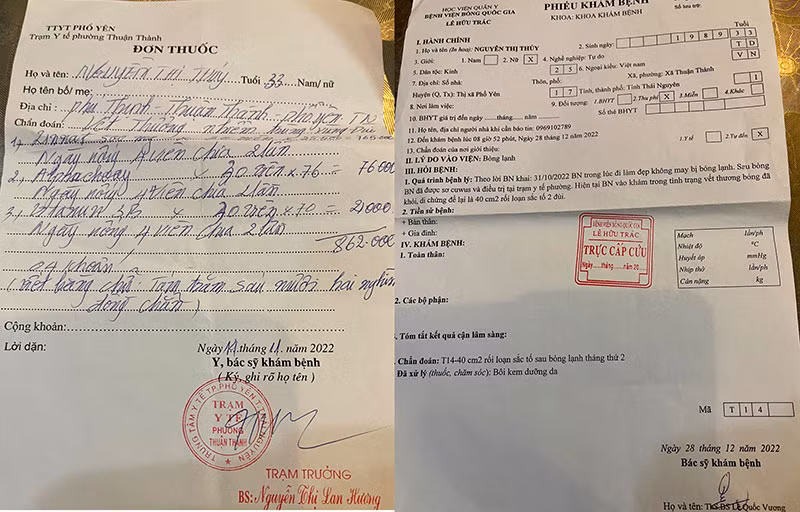 TTYT PHỔ YÊN
Trạm Y tế phường Thuận Thành
ĐƠN THUỐC
Họ và tên Nguyễn Thị Thúy Tuổi 33 Nam/ nữ
Họ tên bố/ mẹ:
Địa chỉ: Phù Thịnh - Thuận Thành - Phổ Yên TN
Chẩn đoán: Vết Thương nhiễm trùng vùng Đùi
1, Zinnat
Ngày uống 4 viên chia 2 lần
2, Alphachoay x 20 viên x 76 = 76000
Ngày uống 4 viên chia 2 lần
3, Vitamin 3B x 20 viên x 70 = 2000
Ngày uống 4 viên chia 2 lần
862-000
khoản
(viết bằng chữ: Tám trăm sáu mươi hai nghìn
đồng chẵn)
Cộng khoản:
Lời dặn:
Ngày 14 tháng 11 năm 2022
Y, bác sỹ khám bệnh
(Ký, ghi rõ họ tên)
TRUNG TÂM Y TẾ TP.PHỔ YÊN T.THÁI NGUYÊN
TRẠM
Y TẾ
PHƯỜNG
THUẬN THÀNH
TRẠM TRƯỞNG
BS: Nguyễn Thị Lan Hương
HỌC VIỆN QUÂN Y
BỆNH VIỆN BỎNG QUỐC GIA
LÊ HỮU TRÁC
PHIẾU KHÁM BỆNH
KHOA: KHOA KHÁM BỆNH
Số lưu trữ:
I. HÀNH CHÍNH
Tuổi
1. Họ và tên (In hoa): NGUYỄN THỊ THÚY
2. Sinh ngày: 1 9 8 9 3 3
3. Giới: 1. Nam 2. Nữ X
4. Nghề nghiệp: Tự do T D
5. Dân tộc: Kinh 2 5
6. Ngoại kiều: Việt nam V N
7. Địa chỉ: Số nhà: Thôn, phố: Xã, phường: Xã Thuận Thành
Huyện (Q, Tx): Thị xã Phổ Yên 1 7 Tỉnh, thành phố: Tỉnh Thái Nguyên 1
8. Nơi làm việc:
9. Đối tượng: 1.BHYT 2.Thu phí X 3.Miễn 4.Khác
10. BHYT giá trị đến ngày......tháng...... năm
Số thẻ BHYT
11. Họ tên, địa chỉ người nhà khi cần báo tin: 0969102789
12. Đến khám bệnh lúc 08 giờ 52 phút, Ngày 28 tháng 12 năm 2022
1.Y tế 2.Tự đến X
13. Chẩn đoán của nơi giới thiệu:
II. LÝ DO VÀO VIỆN: Bỏng lạnh
III. HỎI BỆNH:
1. Quá trình bệnh lý: Theo lời BN khai: 31/10/2022 BN trong lúc đi làm đẹp không may bị bỏng lạnh. Seu bỏng
BN đã được sơ cuwus và điều trị tại trạm y tế phường. Hiện tại BN vào khám trong tình trạng vết thương bỏng đã
khỏi, di chứng để lại là 40 cm2 rối loạn sắc tố 2 đùi.
2. Tiền sử bệnh:
+ Bản thân:
+ Gia đình:
IV. KHÁM BỆNH:
1. Toàn thân:
BỆNH VIỆN BỎNG QUỐC GIA
LÊ HỮU TRÁC
TRỰC CẤP CỨU
Ngày......tháng......năm 20
Mạch lần/ph
Nhiệt độ °C
Huyết áp mmHg
Nhịp thở lần/ph
Cân nặng kg
2. Các bộ phận:
Tóm tắt kết quả cận lâm sàng:
Chẩn đoán: T14-40 cm2 rối loạn sắc tố sau bỏng lạnh tháng thứ 2
Đã xử lý (thuốc, chăm sóc): Bôi kem dưỡng da
Mã T 1 4
Ngày 28 tháng 12 năm 2022
Bác sỹ khám bệnh
Họ và tên: ThS.BS Lê Quốc Vương